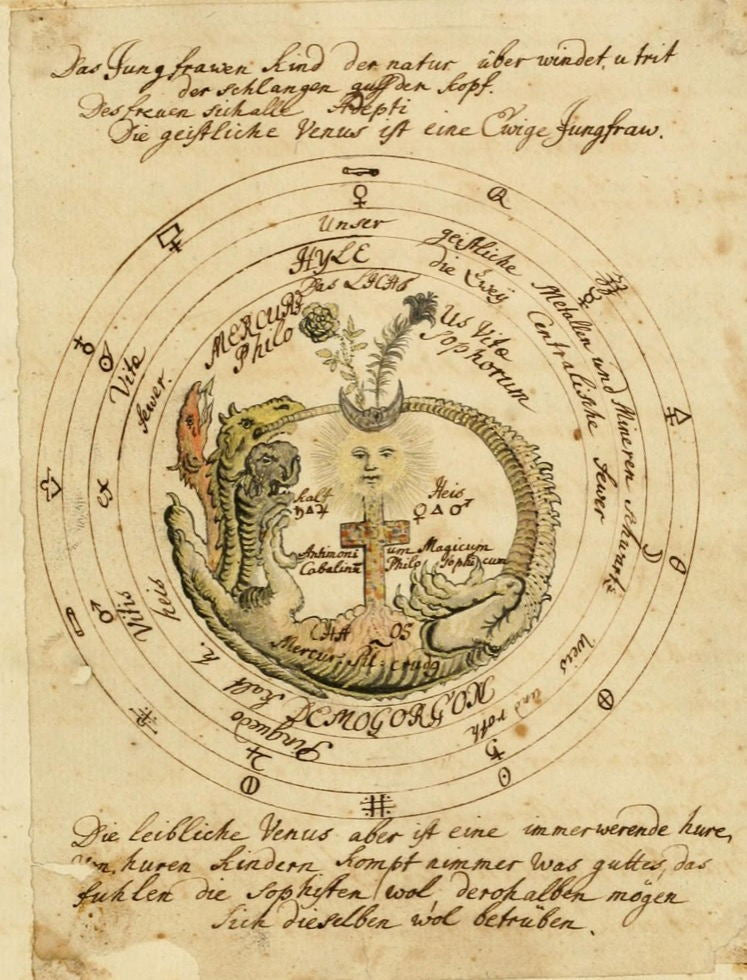 Das Jungfrawen Kind der natur überwindet, u trit
der schlangen auff den Kopf.
Des freuen sich alle Adepti
Die geistliche Venus ist eine Ewige Jungfraw.
Unser
HYLE
Das LICHT
geistliche
die Zwey
Metallen und Mineren schwartz
Centralische fewer
weis
und roth
MERCURI
Philo
US Vitae
Sophorum
Vitae
fewer.
Vitis
heis
Kalt
Heis
♄🜁♃
♀🜂♂
Antimoni um Magicum
Cabalinu Philo Sophicum
CHA OS
Mercur: Sil: crudg
DEMOGORGON
h. Kalt
Pinguedo
Die leibliche Venus aber ist eine immerwerende hure,
Von huren Kindern kompt nimmer was guttes, das
fuhlen die Sophisten wol, derohalben mögen
sich dieselben wol betrüben.